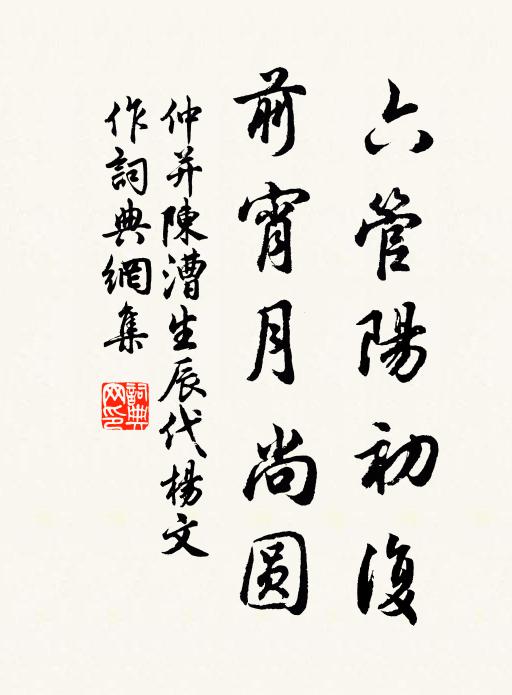 六管陽初復
前宵月尚圆
仲并陳漕生辰代楊文
作詞典網集
詞典网印